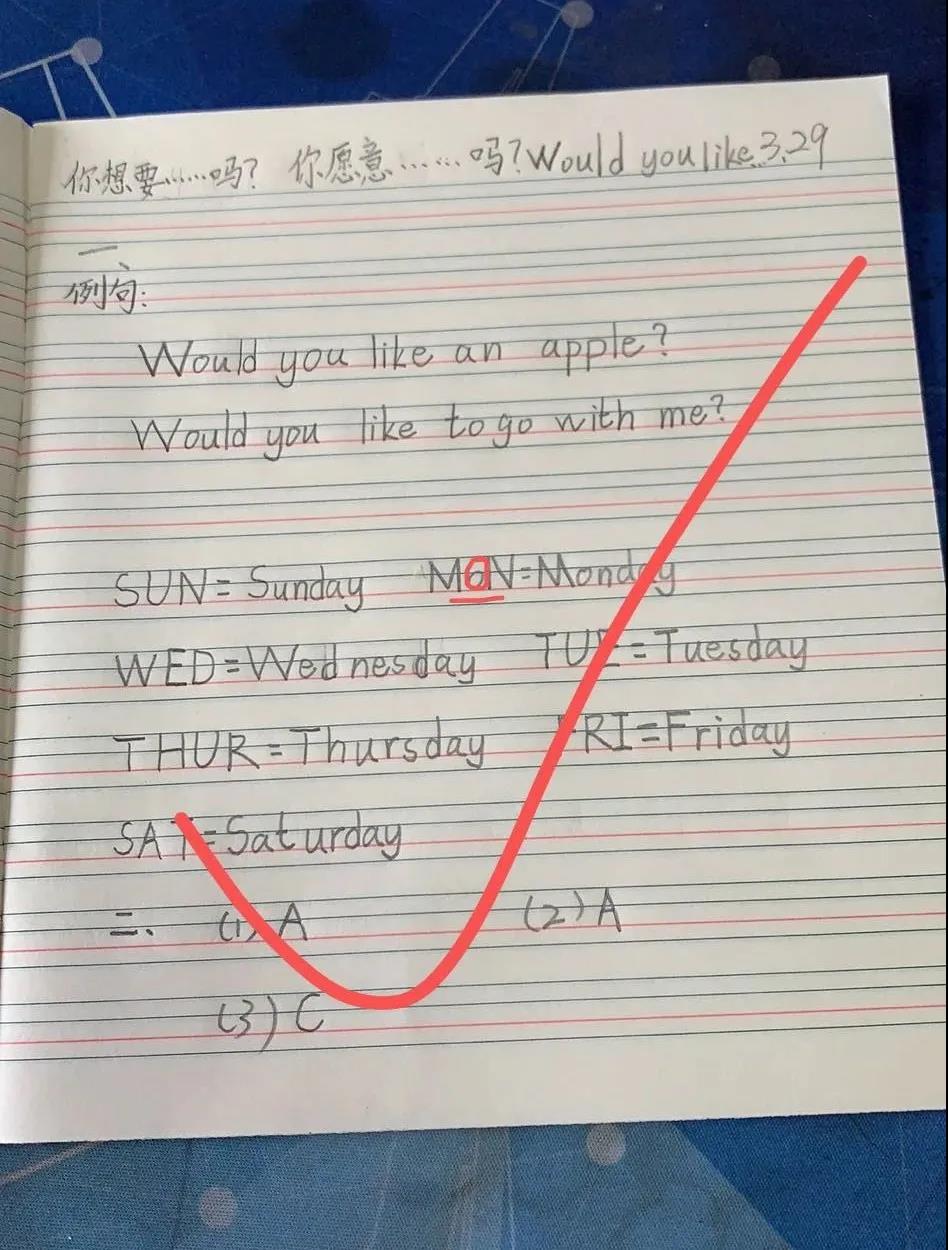 你想要……吗? 你愿意……吗?Would you like 3.29
一、
例句:
Would you like an apple?
Would you like to go with me?
SUN=Sunday MON=Monday
WED=Wednesday TUE=Tuesday
THUR=Thursday FRI=Friday
SAT=Saturday
二、 (1)A (2)A
(3)C